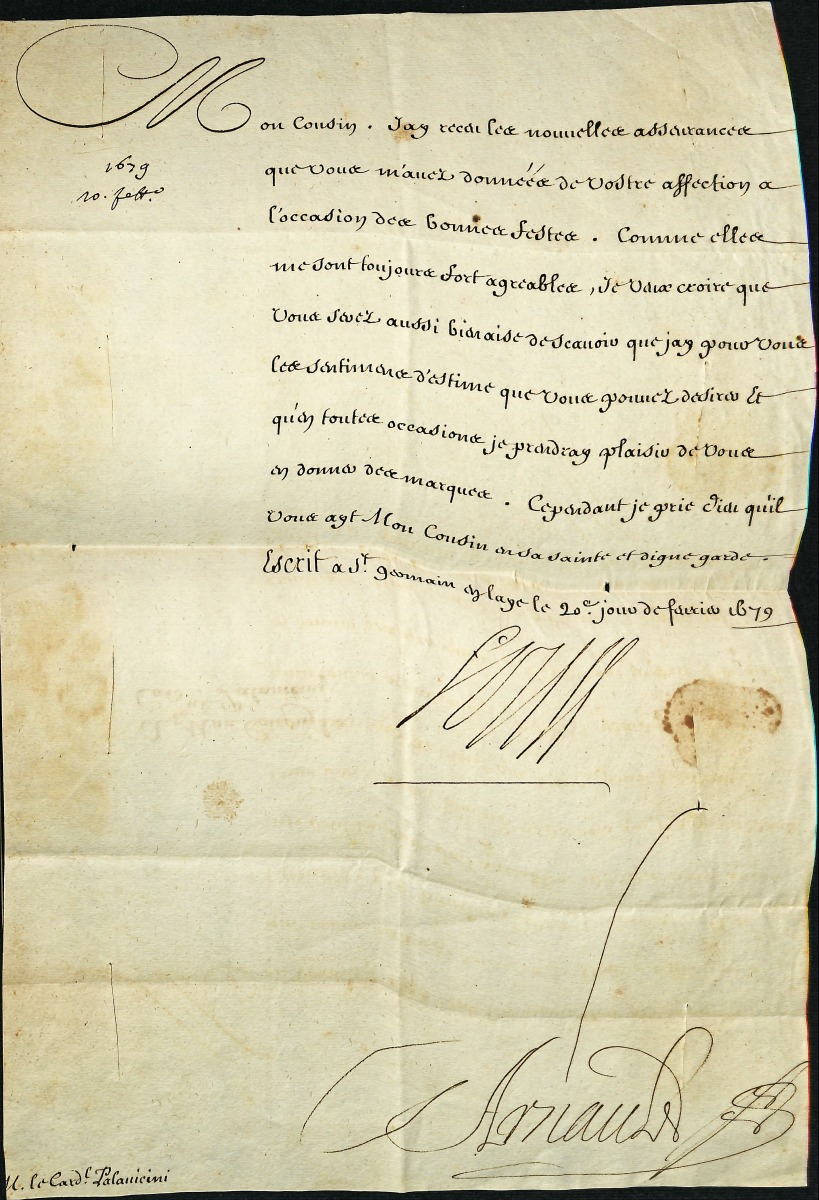 Mon Cousin. J'ay receu les nouvelles asseurances
1679
20. febb.º
que vous m'avez donnéés de vostre affection a
l'occasion des bonnes festes. Comme elles
me sont toujours fort agreables, je veux croire que
vous serez aussi bienaise de scavoir que jay pour vous
les sentimens d'estime que vous pouvez desirer Et
qu'en toutes occasions je prendray plaisir de vous
en donner des marques. Cependant je prie Dieu quil
vous ayt Mon Cousin en sa sainte et digne garde.
Escrit a S.t germain en laye le 20.e jour de fevrier 1679
Louis
Arnauld
M. le Card.l Palavicini